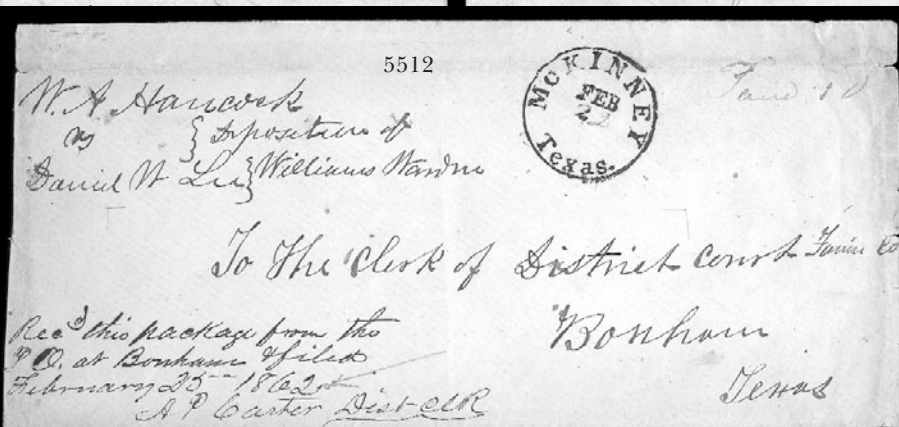 5512
W. A Hancock
vs
Daniel W Lee
Deposition of
William Warden
McKINNEY
FEB
22
Texas.
Paid 10
To The Clerk of District Court Fanin Co
Bonham
Texas
Recd this package from the
P.O. at Bonham & filed
February 25 1862
A P Carter Dist Clk